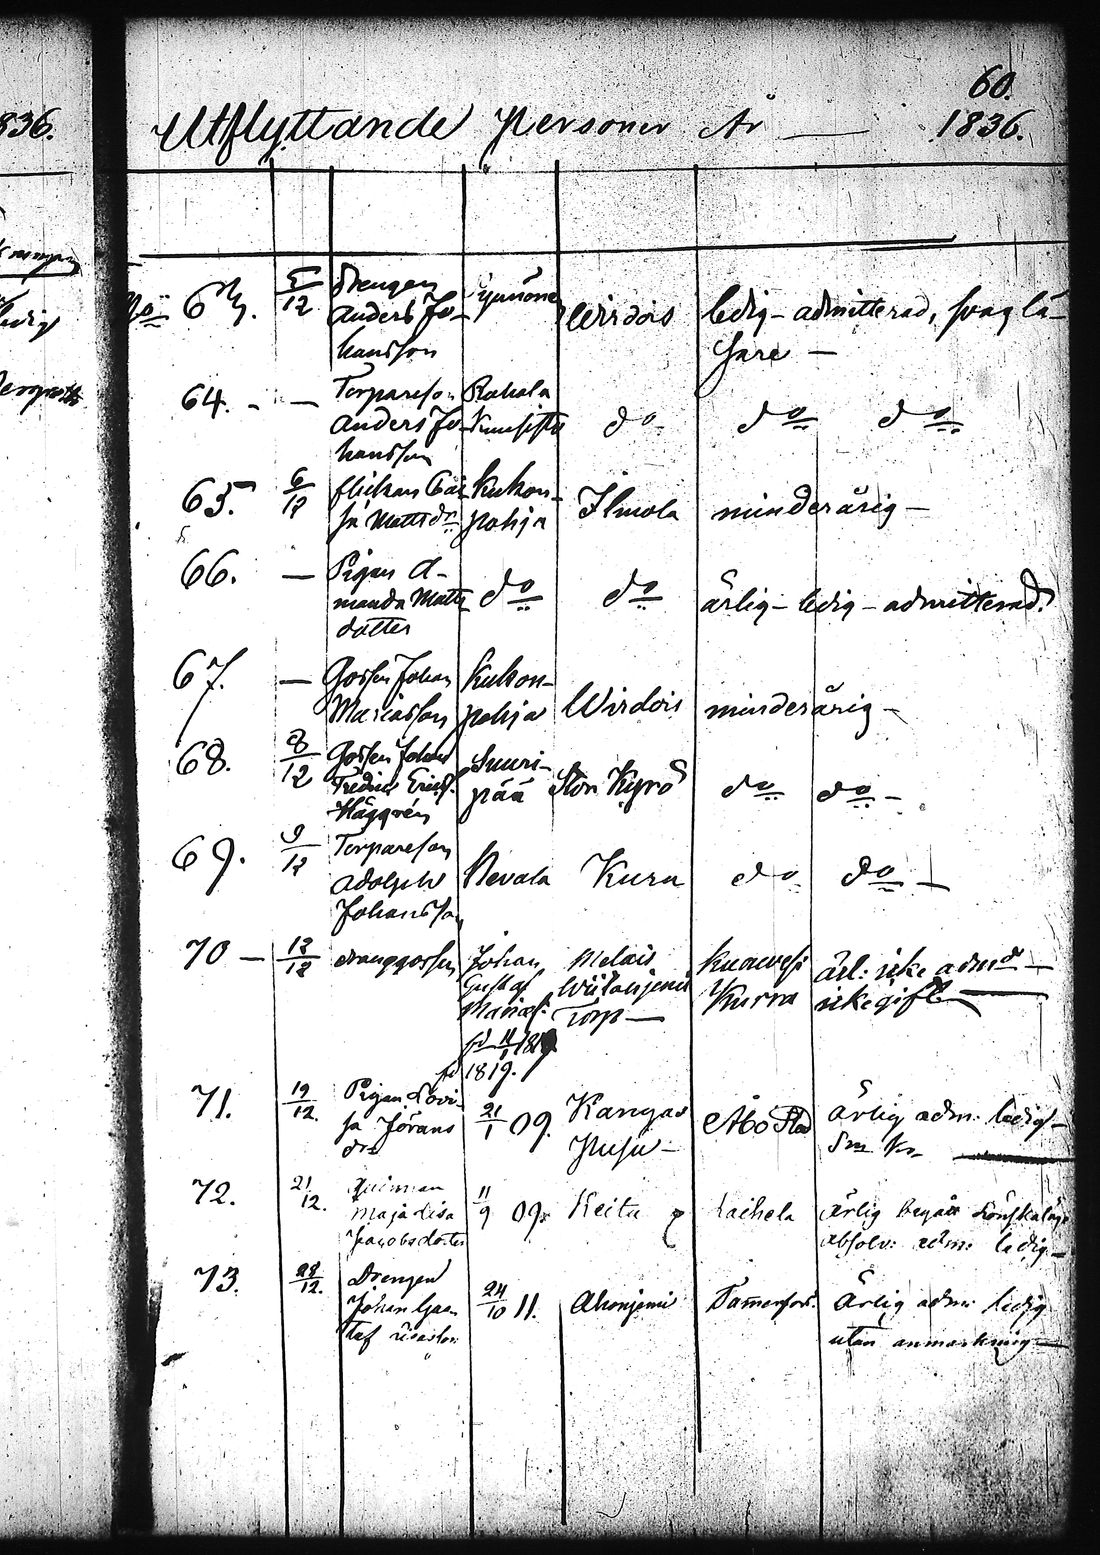 60.
836.
Utflyttande Personer År — 1836.
63. 5/12 Drengen Anders Johansson Wirdois ledig – admitterad, svag läsare –
64. – – Torpareson Anders Johansson Rahola Kuusisto do do do
65. 6/12 flickan Cajsa Mattsdr Kukonpohja Ilmola minderårig –
66. — Pigan Amanda Mattsdotter do do ärlig – ledig – admitterad.
67. — Gossen Johan Mariasson Kukonpohja Wirdois minderårig –
68. 8/12 Gossen Johan Fredric Ericss. Häggrén Suuripää Stor Kyrö do do –
69. 9/12 Torpareson Adolph Johansson Nevala Kuru do do –
70 – 12/12 drenggossen Johan Gustaf Mariæs. fd 11/1 1819 fd 1819. Melais Wiitaniemi Torp — Kuorvesi Kurru ärl: icke admd — icke gift —
71. 19/12. Pigan Lovisa Jörans dr 21/1 09. Kangas Pusu – Åbo Stad ärlig adm: ledig –
72. 21/12. Quinnan Maja Lisa Jacobsdotter 11/9 09. Keitu Laihela ärlig begått Lönskaläge absolv: adm: ledig –
73. 28/12. Drengen Johan Gustaf Esaiasson 24/10 11. Ahonjemi Tammerfors. Ärlig adm: ledig utan anmärkning —